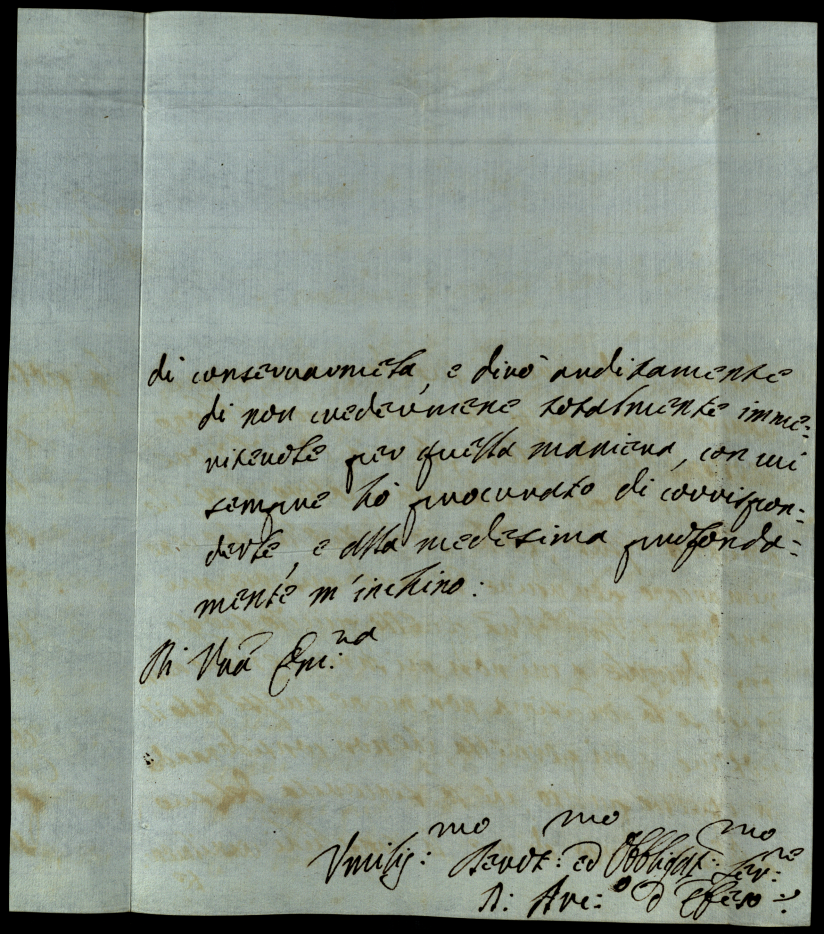 di conseruarmela, e dirò arditamente
di non credermene totalmente imme=
riteuole per quella maniera, con cui
sempre hò procurato di corrispon=
derle, e alla medesima profonda=
mente m'inchino:
Di Vrã Em:za
Vmiliss:mo Deuot:mo ed Obbligat:mo Ser:re
A: Arc:o d'Efeso